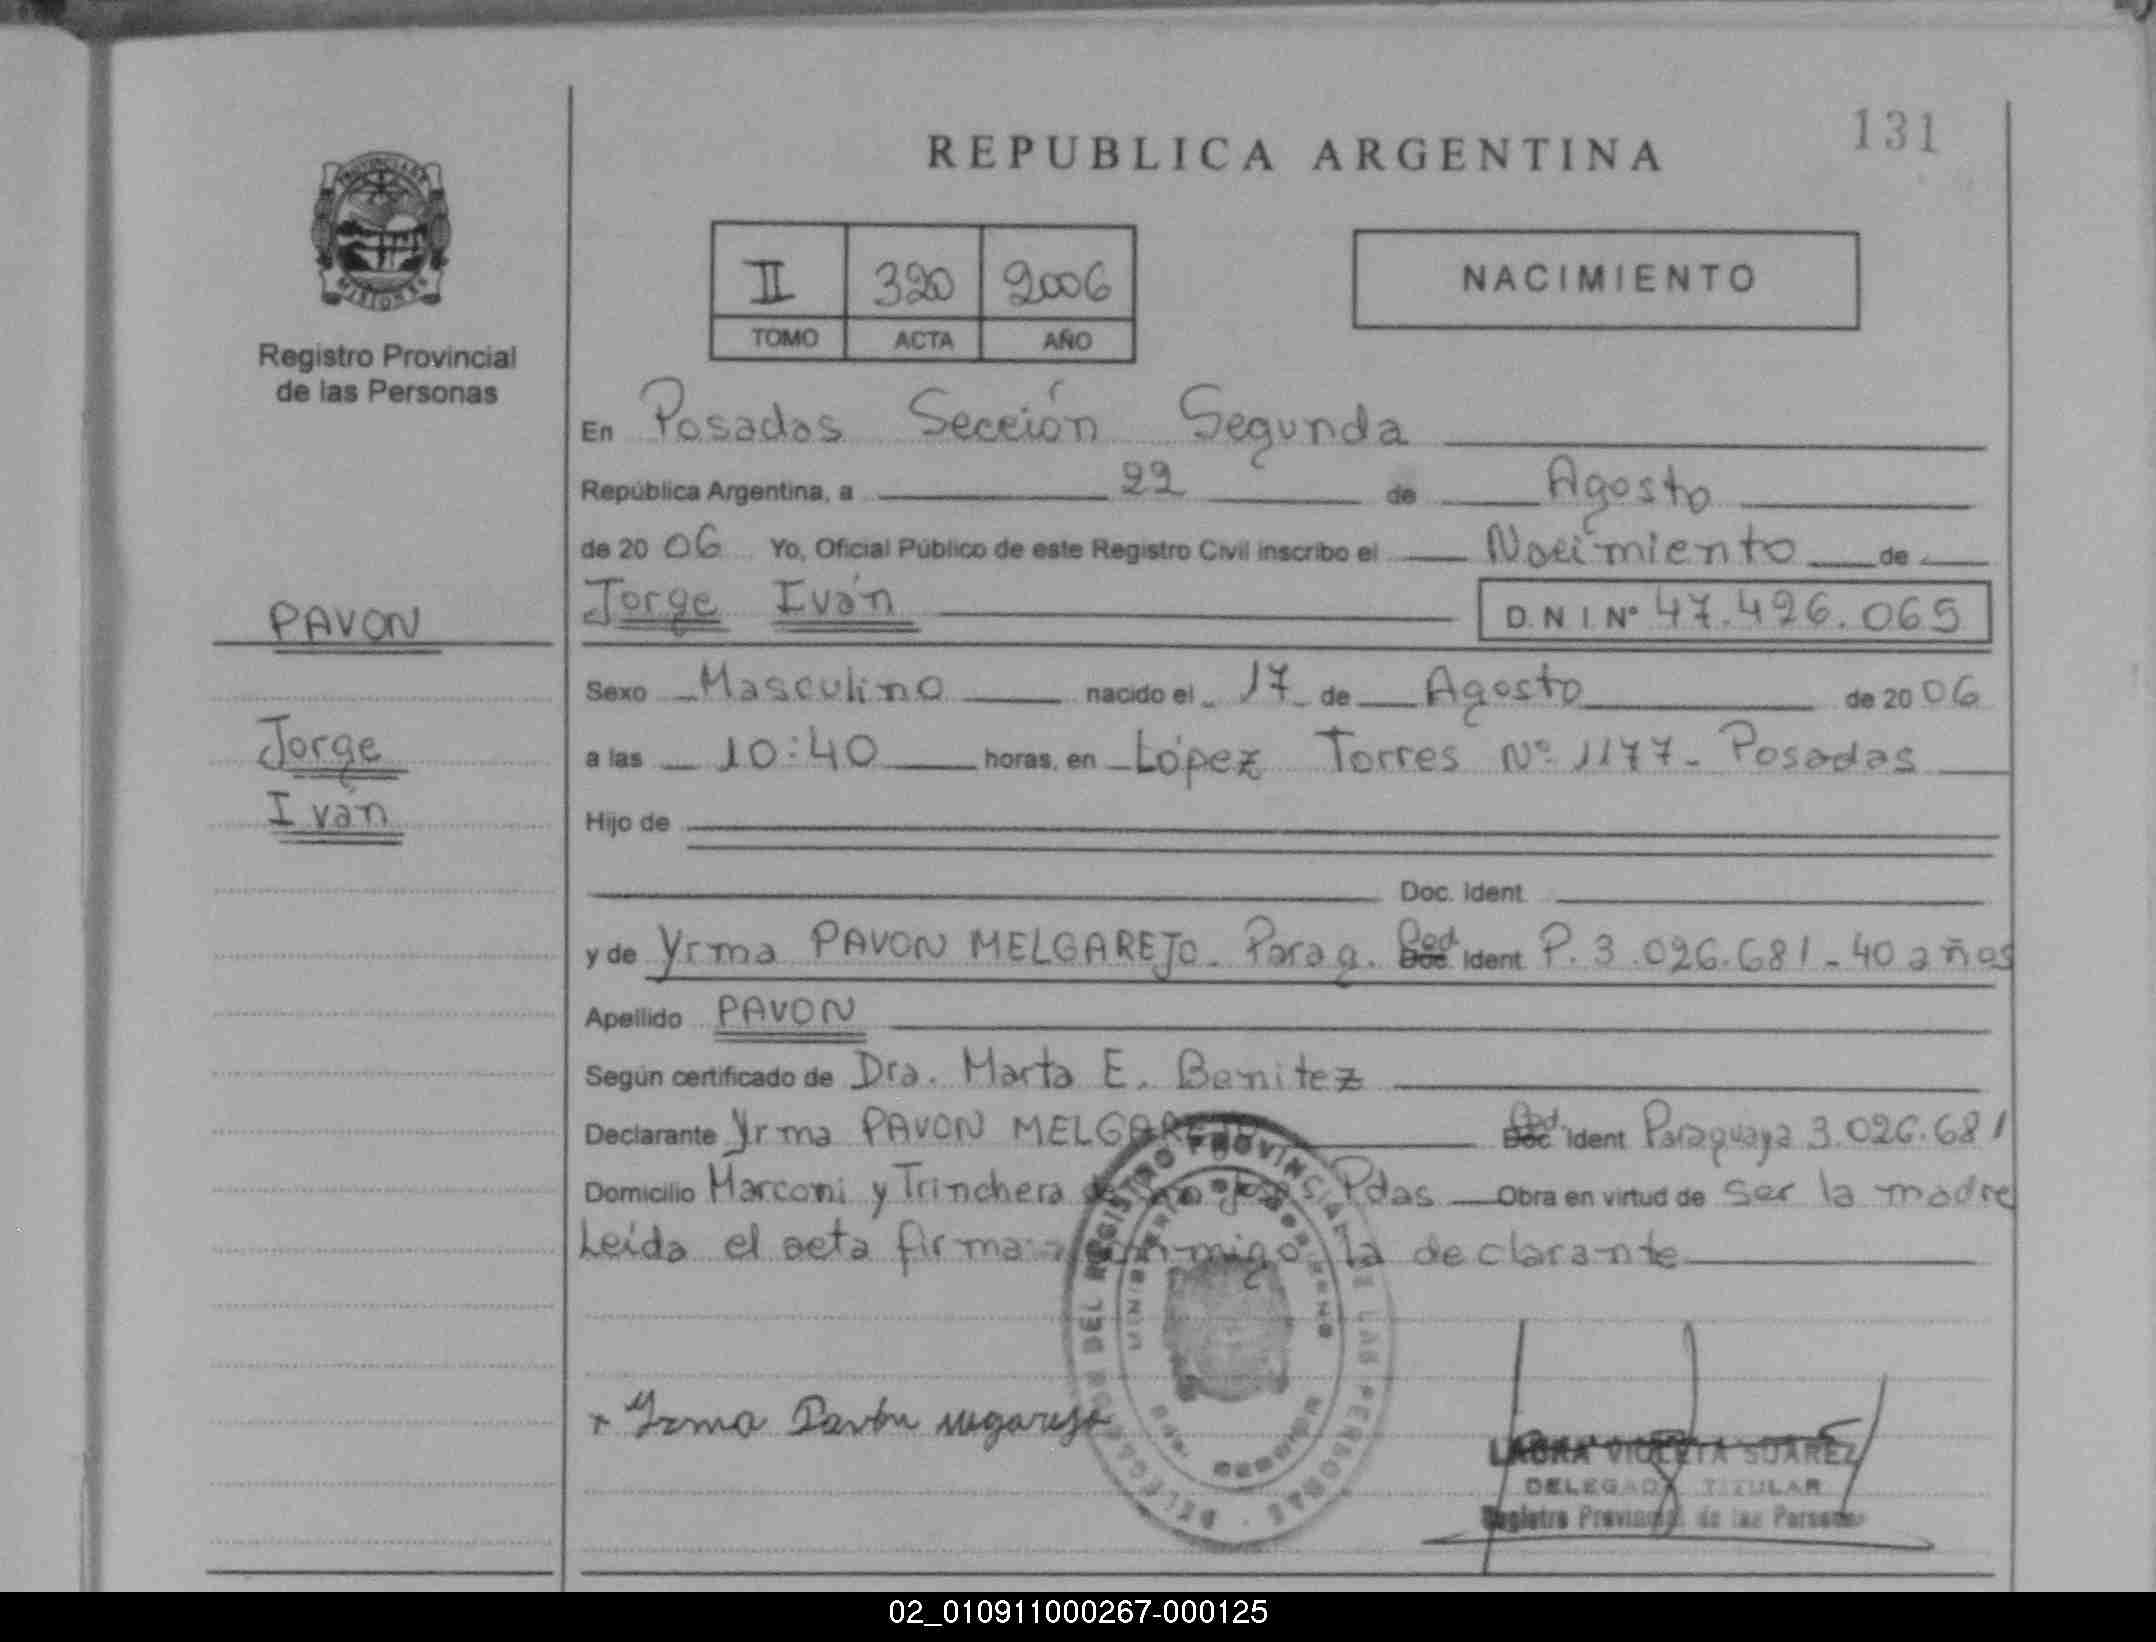 131
REPUBLICA ARGENTINA
PROVINCIA DE
MISIONES
Registro Provincial
de las Personas
II 320 2006
TOMO ACTA AÑO
NACIMIENTO
En Posadas Sección Segunda
República Argentina, a 22 de Agosto
de 2006 Yo, Oficial Público de este Registro Civil inscribo el Nacimiento de
Jorge Iván D.N.I. Nº 47.426.065
PAVON
Jorge
Iván
Sexo Masculino nacido el 17 de Agosto de 2006
a las 10:40 horas, en López Torres Nº 1177- Posadas
Hijo de
Doc. Ident.
y de Yrma PAVON MELGAREJO- Parag. Ced. Doc. Ident. P. 3.026.681-40 años
Apellido PAVON
Según certificado de Dra. Marta E. Benitez
Declarante Yrma PAVON MELGAREJO Ced. Doc. Ident. Paraguaya 3.026.681
Domicilio Marconi y Trinchera de San José Pdas Obra en virtud de ser la madre
Leída el acta firma conmigo la declarante
DELEGACION DEL REGISTRO PROVINCIAL DE LAS PERSONAS
MINISTERIO DE GOBIERNO
MISIONES
+ Yrma Pavón
LAURA VIOLETA SUAREZ
DELEGADA TITULAR
Registro Provincial de las Personas
02_010911000267-000125